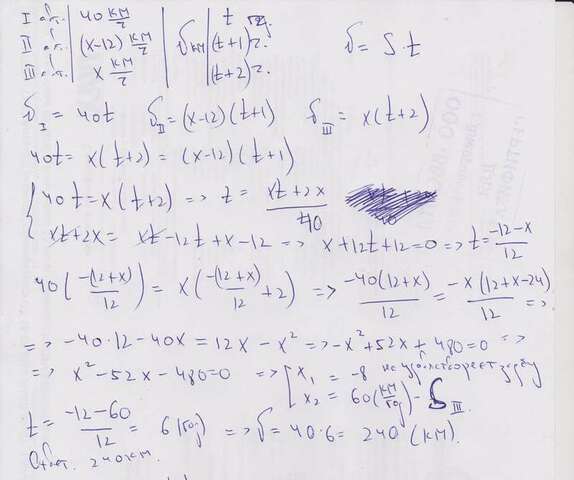 I авт. 40 км/г t г.
II авт. (x-12) км/г S км (t+1) г. S = S · t
III авт. x км/г (t+2) г.
S I = 40t S II = (x-12)(t+1) S III = x(t+2)
40t = x(t+2) = (x-12)(t+1)
{ 40t = x(t+2) => t = (xt+2x)/40
xt+2x = xt-12t+x-12 => x+12t+12=0 => t = (-12-x)/12
40(-(12+x)/12) = x(-(12+x)/12 + 2) => -40(12+x)/12 = -x(12+x-24)/12 =>
=> -40·12-40x = 12x - x² => -x²+52x+480=0 =>
=> x²-52x-480=0 => [ x₁ = -8 не удовлетворяет задачу
x₂ = 60 (км/год) - S III.
t = (-12-60)/12 = 6 (год) => S = 40·6 = 240 (км).
Ответ. 240 км.